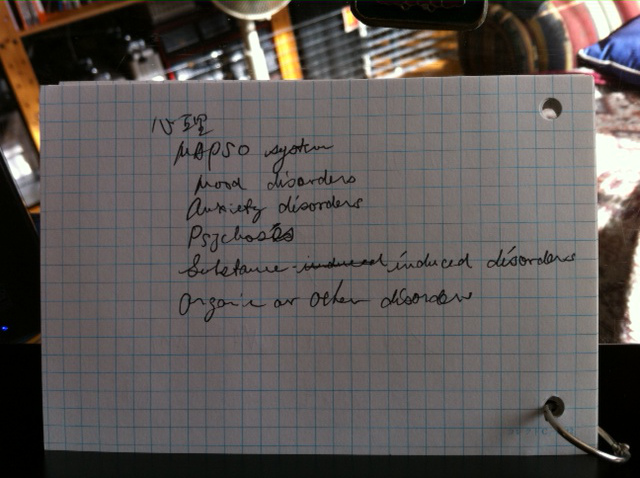 心理
MAPSO system
Mood disorders
Anxiety disorders
Psychosis
Substance induced induced disorders
Organic or Other disorders